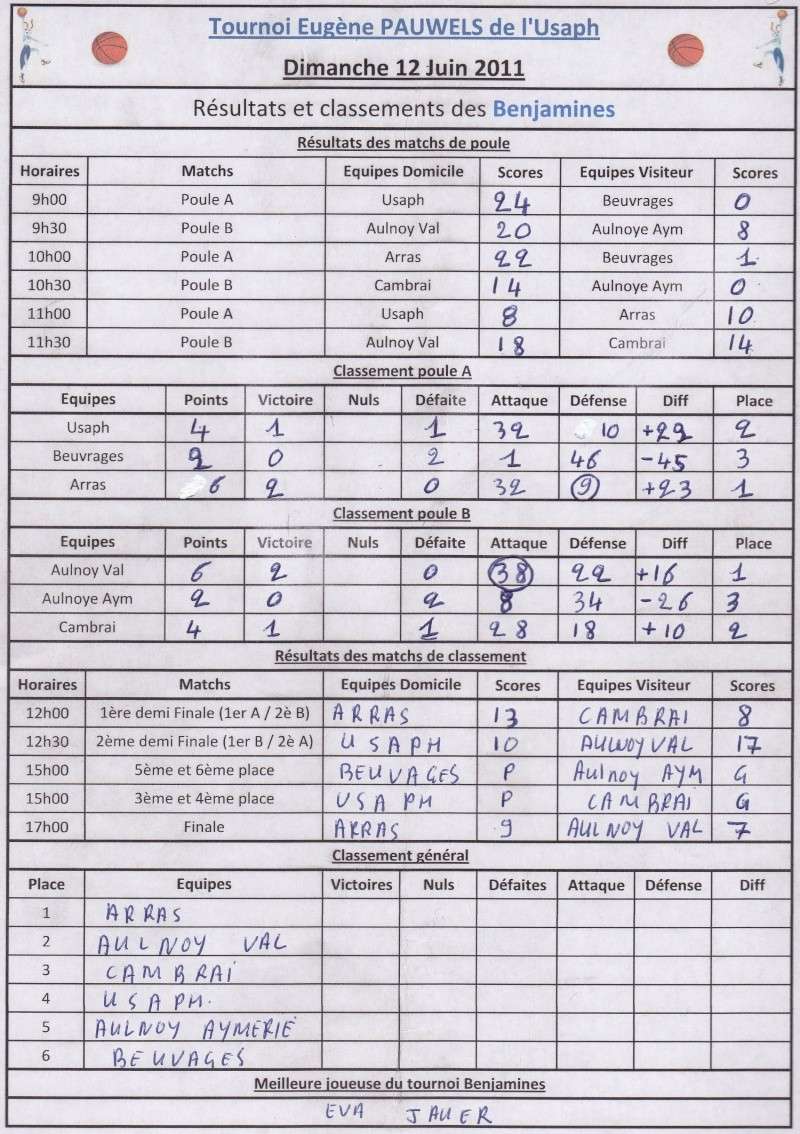 Tournoi Eugène PAUWELS de l'Usaph
Dimanche 12 Juin 2011
Résultats et classements des Benjamines
Résultats des matchs de poule
Horaires Matchs Equipes Domicile Scores Equipes Visiteur Scores
9h00 Poule A Usaph 24 Beuvrages 0
9h30 Poule B Aulnoy Val 20 Aulnoye Aym 8
10h00 Poule A Arras 22 Beuvrages 1
10h30 Poule B Cambrai 14 Aulnoye Aym 0
11h00 Poule A Usaph 8 Arras 10
11h30 Poule B Aulnoy Val 18 Cambrai 14
Classement poule A
Equipes Points Victoire Nuls Défaite Attaque Défense Diff Place
Usaph 4 1 1 32 10 +22 2
Beuvrages 2 0 2 1 46 -45 3
Arras 6 2 0 32 9 +23 1
Classement poule B
Equipes Points Victoire Nuls Défaite Attaque Défense Diff Place
Aulnoy Val 6 2 0 38 22 +16 1
Aulnoye Aym 2 0 2 8 34 -26 3
Cambrai 4 1 1 28 18 +10 2
Résultats des matchs de classement
Horaires Matchs Equipes Domicile Scores Equipes Visiteur Scores
12h00 1ère demi Finale (1er A / 2è B) ARRAS 13 CAMBRAI 8
12h30 2ème demi Finale (1er B / 2è A) USAPH 10 AULNOYVAL 17
15h00 5ème et 6ème place BEUVAGES P Aulnoy AYM G
15h00 3ème et 4ème place USAPH P CAMBRAI G
17h00 Finale ARRAS 9 AULNOY VAL 7
Classement général
Place Equipes Victoires Nuls Défaites Attaque Défense Diff
1 ARRAS
2 AULNOY VAL
3 CAMBRAI
4 USAPH.
5 AULNOY AYMERIE
6 BEUVAGES
Meilleure joueuse du tournoi Benjamines
EVA JAUER